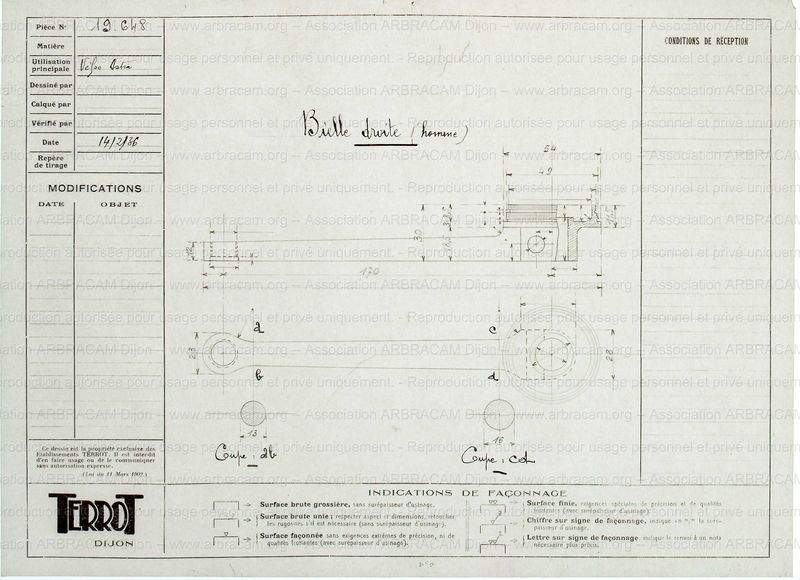 Pièce N° 19.648
Matière
Utilisation
principale
Dessiné par
Calqué par
Vérifié par
Date 14/2/36
Repère
de tirage
MODIFICATIONS
DATE OBJET
Ce dessin est la propriété exclusive des
Etablissements TERROT. Il est interdit
d'en faire usage ou de le communiquer
sans autorisation expresse.
(Loi du 11 Mars 1902.)
TERROT
DIJON
CONDITIONS DE RÉCEPTION
Bielle droite (homme)
54
49
30
12
170
a
c
23
28
b
d
13
16
Coupe : ab
Coupe : cd
INDICATIONS DE FAÇONNAGE
Surface brute grossière, sans surépaisseur d'usinage.
Surface brute unie ; respecter aspect et dimensions, retoucher
les rugosités s'il est nécessaire (sans surépaisseur d'usinage).
Surface façonnée sans exigences extrêmes de précision, ni de
qualités frottantes (avec surépaisseur d'usinage).
Surface finie, exigences spéciales de précision et de qualités
frottantes (avec surépaisseur d'usinage).
Chiffre sur signe de façonnage, indique en m/m la surépaisseur d'usinage.
Lettre sur signe de façonnage, indique le renvoi à un nota
nécessaire plus précis.
www.arbracam.org -- Association ARBRACAM Dijon -- Reproduction autorisée pour usage personnel et privé uniquement.